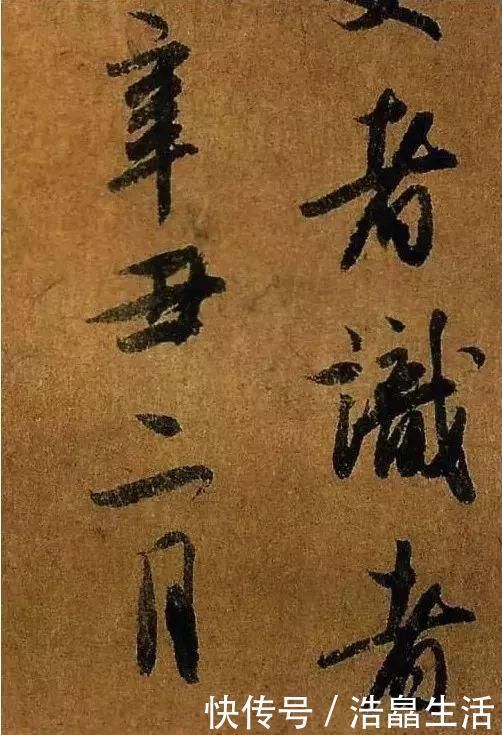 者識者
辛丑二月
快传号 / 浩皛生活